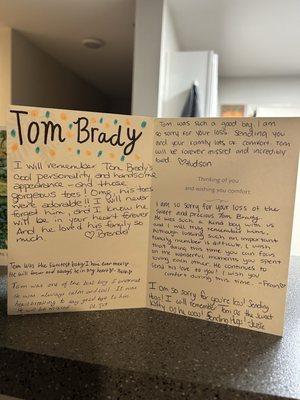 Tom Brady
I will remember Tom Brady's
cool personality and handsome
appearance - and those
gorgeous toes! Omg, his toes
were adorable!! I will never
forget him, and I know he
will be in your heart forever
And he loved his family so
much. ♡Brenda
Tom was the sweetest baby I have ever met
He will forever and always be in my heart
Tom was one of the best boys I ever met
He was always calm and cool. It was
heartbreaking to say good bye to him
He will be missed
Tom was such a good boy. I am
so sorry for your loss. Sending you
and your family lots of comfort. Tom
will be forever missed and incredibly
loved. ♡Hudson
Thinking of you
and wishing you comfort.
I am so sorry for your loss of the
sweet and precious Tom Brady.
He was such a kind boy with us
and I will truly remember him.
Although losing such an important
family member is difficult, I wish
that during this time you can focus
on the wonderful moments you spent
loving each other. He continues to
send his love to you! I wish you
comfort during this time. -Fran
I am so sorry for you're loss! Sending
Hugs! I will remember Tom as the sweet
kitty as he was! Sending Hugs! -Susie